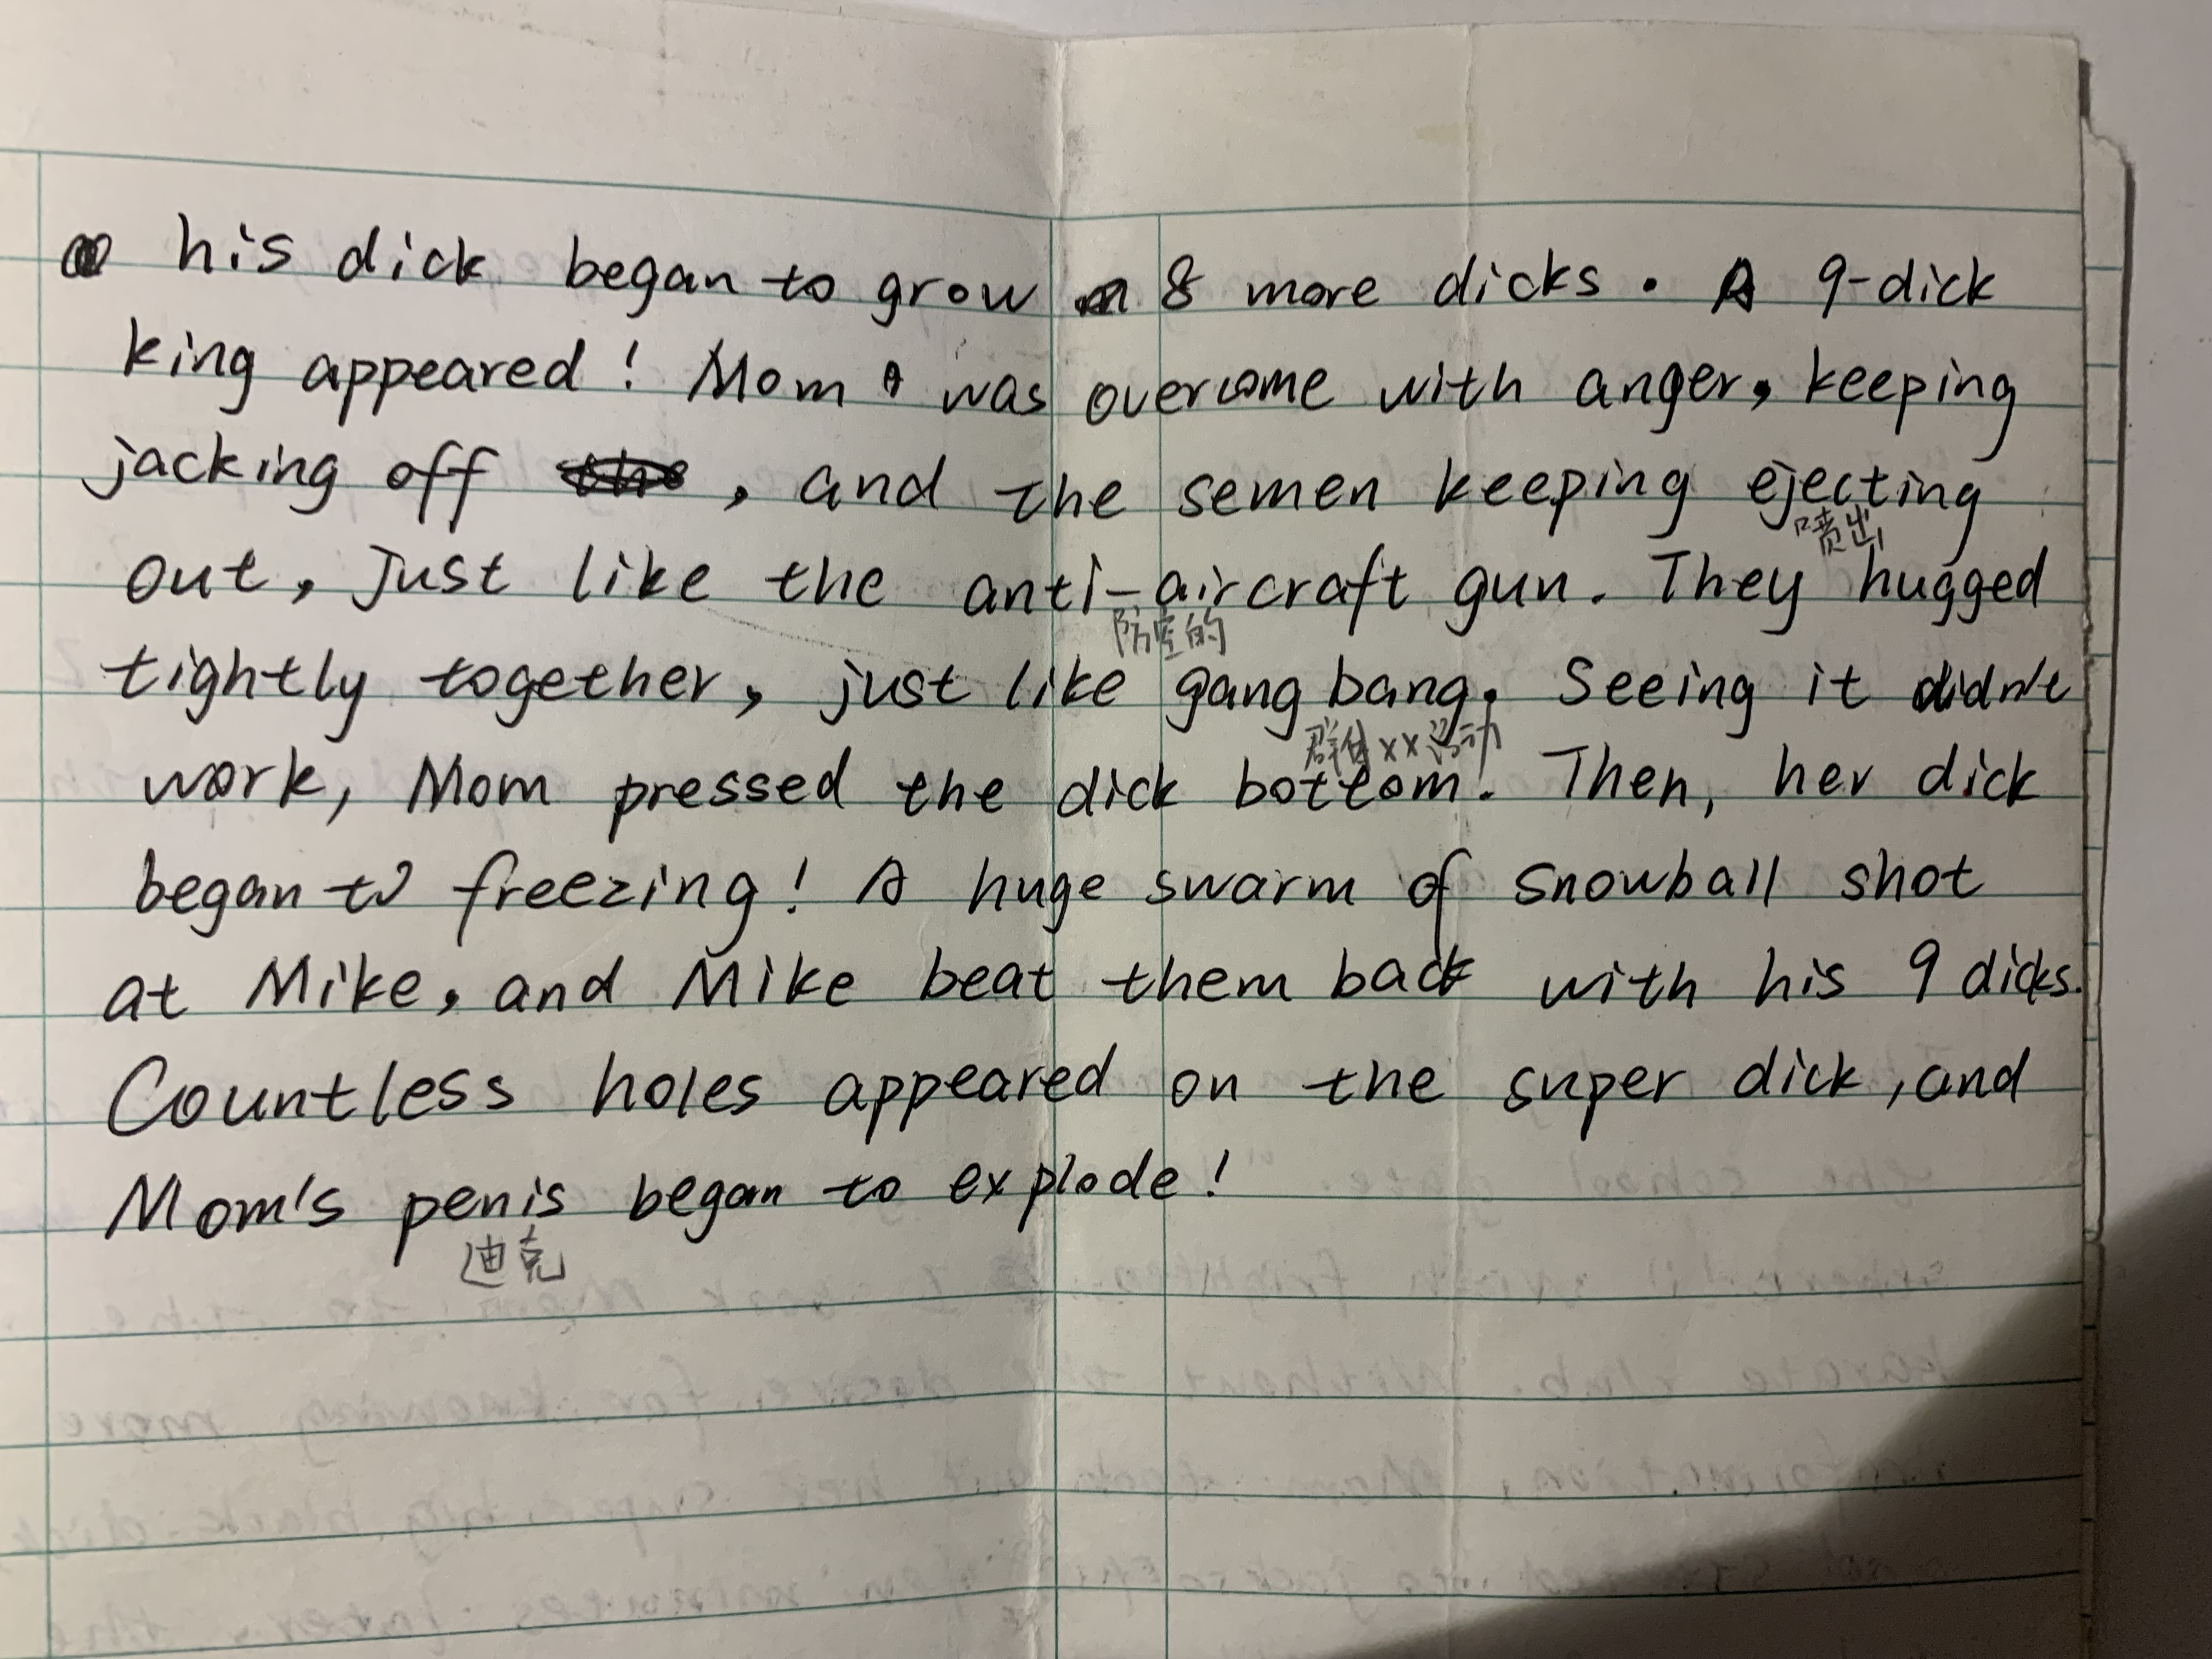 his dick began to grow 8 more dicks. A 9-dick
king appeared! Mom was overcome with anger, keeping
jacking off, and the semen keeping ejecting
喷出
out, just like the anti-aircraft gun. They hugged
防空的
tightly together, just like gang bang. Seeing it didn't
群体××运动
work, Mom pressed the dick bottom. Then, her dick
began to freezing! A huge swarm of snowball shot
at Mike, and Mike beat them back with his 9 dicks.
Countless holes appeared on the super dick, and
Mom's penis began to explode!
迪克